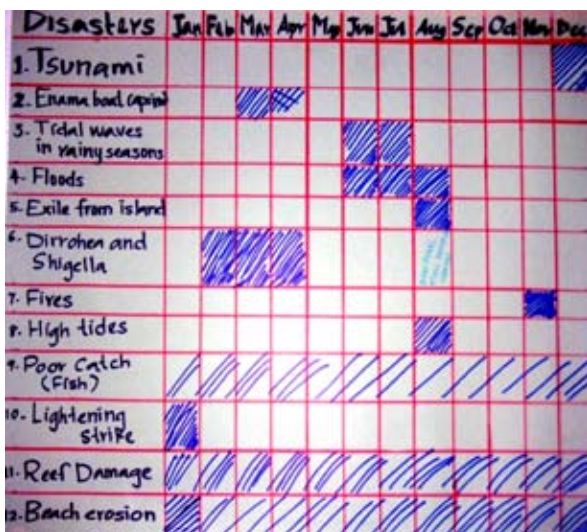 Disasters Jan Feb Mar Apr May Jun Jul Aug Sep Oct Nov Dec
1. Tsunami
2. Enama boat
3. Tidal waves
in rainy seasons
4. Floods
5. Exile from island
6. Dirrohea and
Shigella
7. Fires
8. High tides
9. Poor Catch
(Fish)
10. Lightening
strike
11. Reef Damage
12. Beach erosion